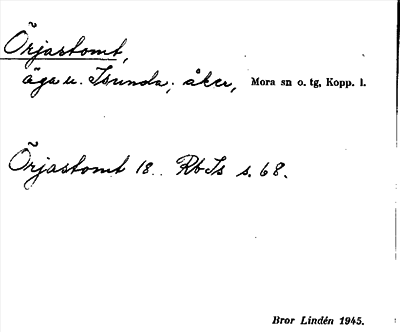 Örjastomt,
äga u. Isunda; åker, Mora sn o. tg, Kopp. l.
Örjastomt 18.. RbIs s. 68.
Bror Lindén 1945.